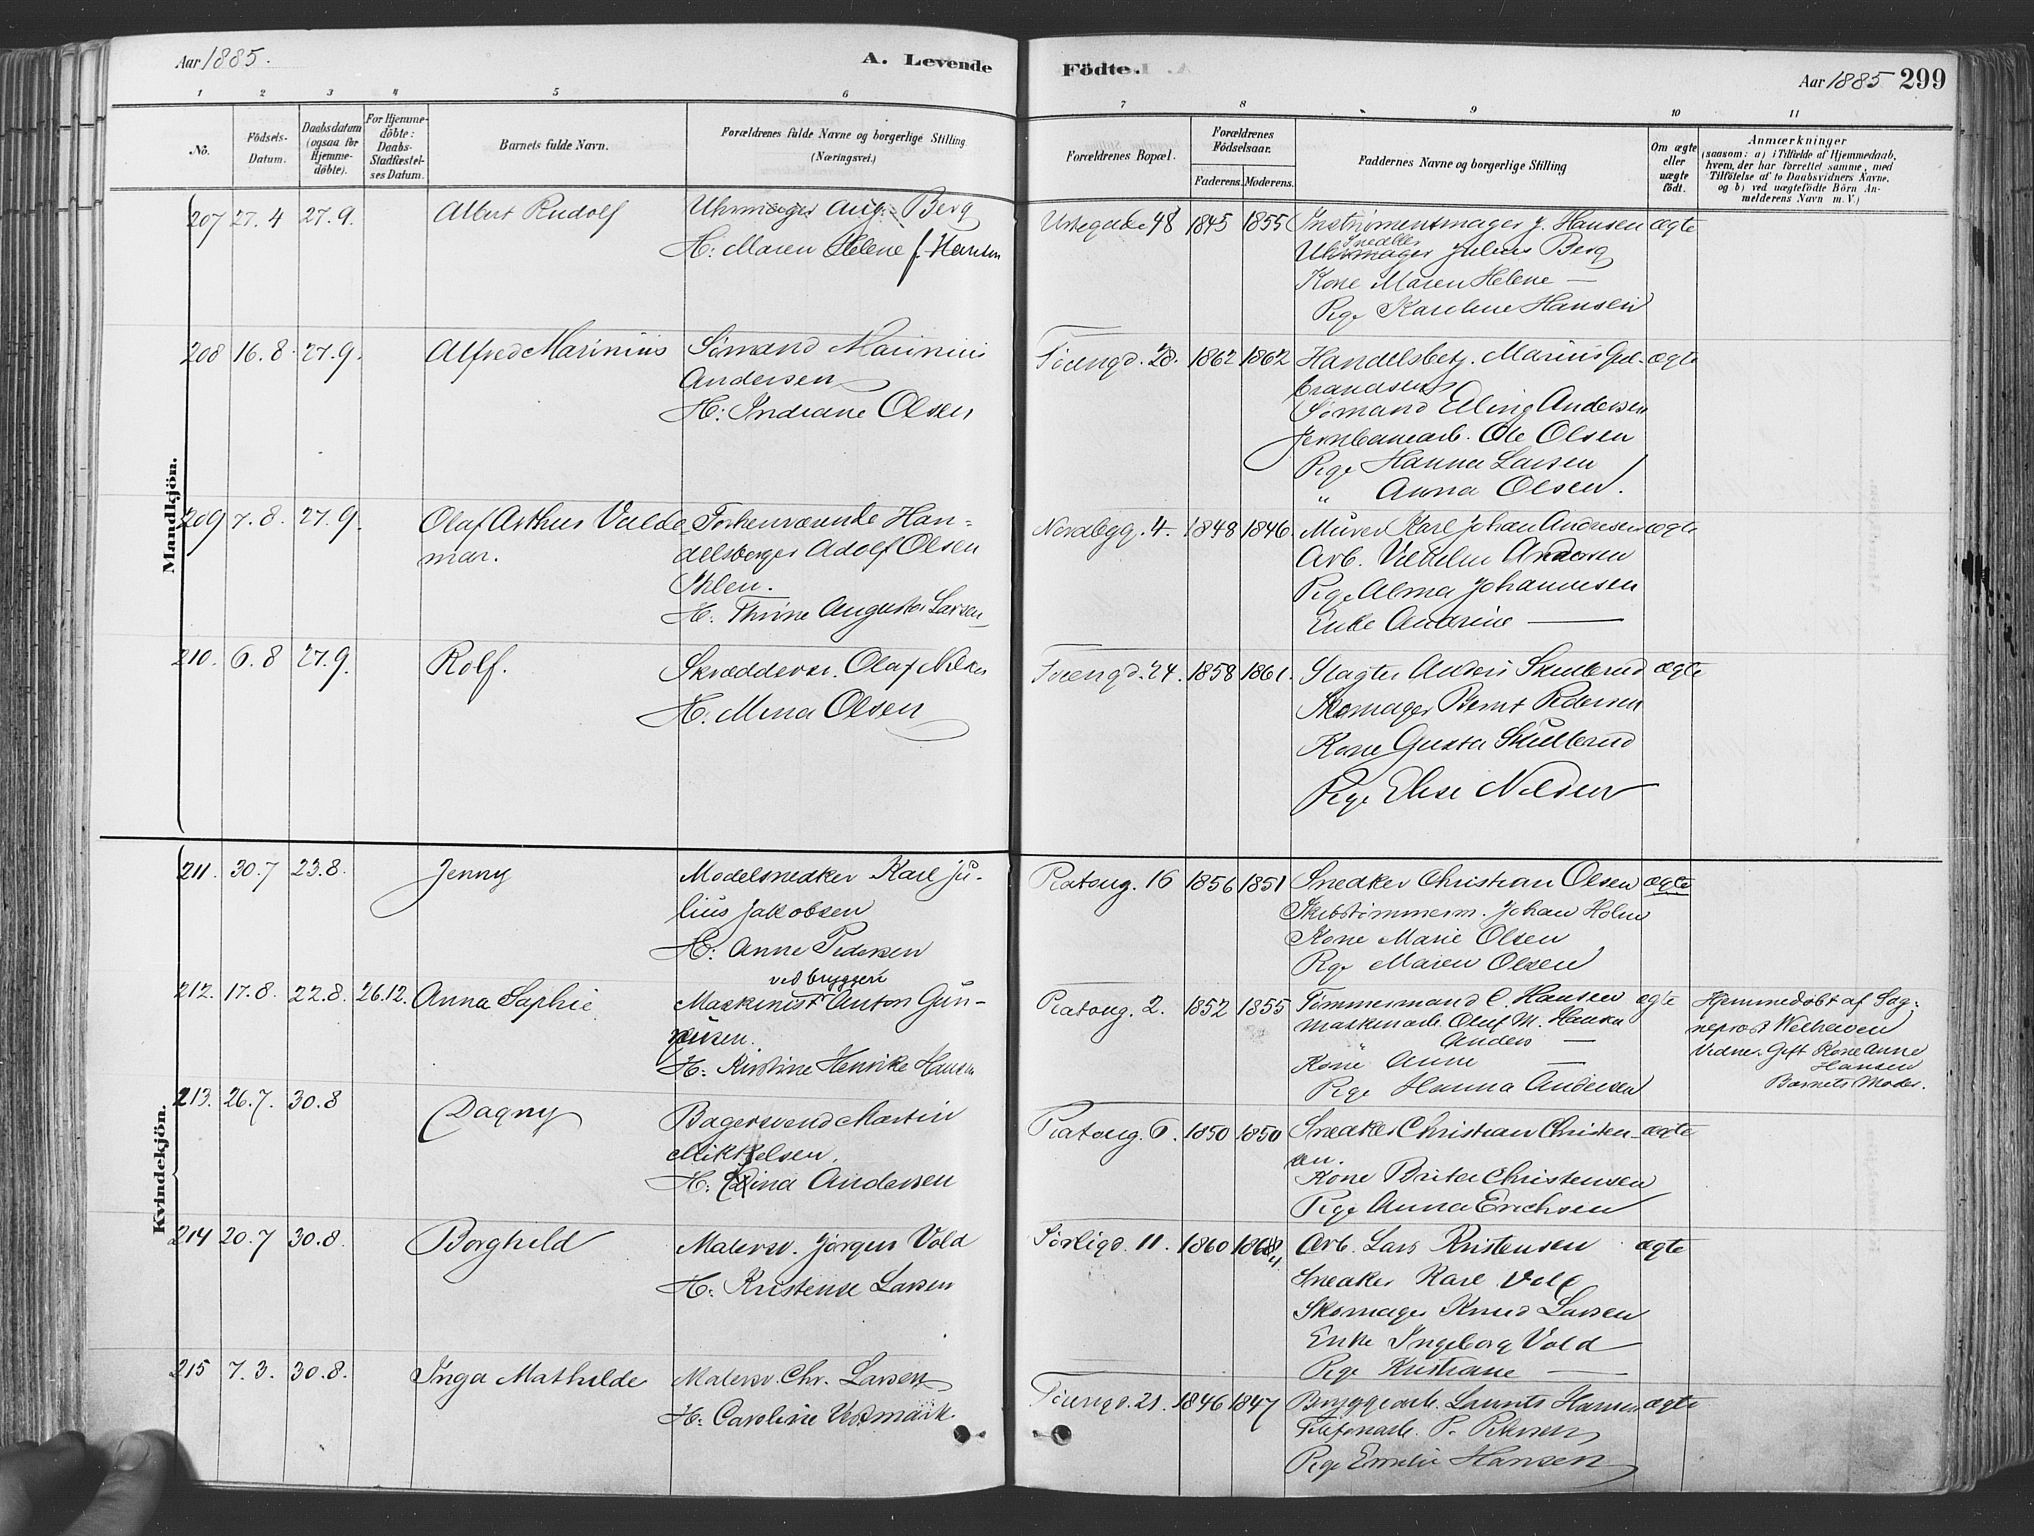 Aar 1885.
A. Levende
Födte.
Aar 1885 299
1 2 3 4 5 6 7 8 9 10 11
No.
Födsels-Datum.
Daabsdatum (ogsaa for Hjemmedöbte).
For Hjemmedöbte: Daabs-Stadfæstelses Datum.
Barnets fulde Navn.
Forældrenes fulde Navne og borgerlige Stilling (Næringsvei.)
Forældrenes Bopæl.
Forældrenes Födselsaar.
Faderens. Moderens.
Faddernes Navne og borgerlige Stilling
Om ægte eller uægte födt.
Anmærkninger
(saasom: a) i Tilfælde af Hjemmedaab, hvem der har forrettet samme, med Tilföielse af to Daabsvidners Navne, og b) ved uægtefödte Börn Anmelderens Navn m. V.)
Mandkjön.
207 27.4 27.9. Albert Rudolf
Uhrmager Aug. Berg
H: Maren Helene f. Hansen
48 1845 1855
Instrumentmager J. Hansen ægte
Snedker
Uhrmager Julius Berg
Kone Maren Helene —
Pige Karoline Hansen
208 16.8. 27.9. Alfred Marinius
Sømand Marinius
Andersen
H: Indiane Olsen
Tøiengd. 28. 1862 1862
Handelsbetj. Marius Gul- ægte
brandsen
Sømand Elling Andersen
Jernbanearb. Ole Olsen
Pige Hanna Larsen
" Anna Olsen.
209 7.8. 27.9. Olaf Arthur Valde
mar.
Forhenværende Han-
delsborger Adolf Olsen
Ihlen.
H. Thrine Augusta Larsen
Nordbygg. 4. 1848 1846.
Murer Karl Johan Andresen ægte
Arb. Vilhelm Andersen
Pige Alma Johannesen
Enke Andrine —
210. 6.8 27.9. Rolf.
Skræddersv. Olaf Nilsen
H. Mina Olsen
Tøiengd. 24. 1858 1861.
Slagter Anders Skullerud ægte
Skomager Bernt Pedersen
Kone Gusta Skullerud
Pige Elise Nilsen
Kvindekjön.
211. 30.7 23.8. Jenny
Modelsnedker Karl Ju-
lius Jakobsen
H: Anne Pedersen
Platoug. 16 1856 1851
Snedker Christian Olsen ægte
Skibstømmerm. Johan Holm
Kone Marie Olsen
Pige Maren Olsen
212. 17.8. 22.8. 26.12. Anna Sophie
ved bryggeri
Maskinist Anton Gun-
H: Kirstine Henrike Hansen
Platoug. 2. 1852 1855
Tømmermand C. Hansen ægte
Maskinarb. Oluf M. Hansen
Anders —
Kone Anne —
Pige Hanna Andersen
Hjemmedøbt af Sog-
neprest Welhaven
Vidner: Gift Kone Anne
Hansen
Barnets Moder.
213. 26.7. 30.8 Dagny
Bagersvend Martin
Mikkelsen.
H: Andersen
Platoug. 6. 1850 1850
Snedker Christian Christen- ægte
sen.
Kone Brita Christensen
Pige Anna Erichsen
214 20.7 30.8. Borghild
Malersv. Jørgen Vold
H: Kristense Larsen
Sørligd. 11. 1860
Arb. Lars Kristensen ægte
Snedker Karl Vold
Skomager Knud Larsen
Enke Ingeborg Vold
Pige Kristiane —
215 7.3. 30.8. Inga Mathilde
Malersv. Chr. Larsen
H: Caroline
Tøiengd. 21. 1846 1847
Bryggearb. Laurits Hansen ægte
Telefonarb. P. Petersen
Pige Emilie Hansen